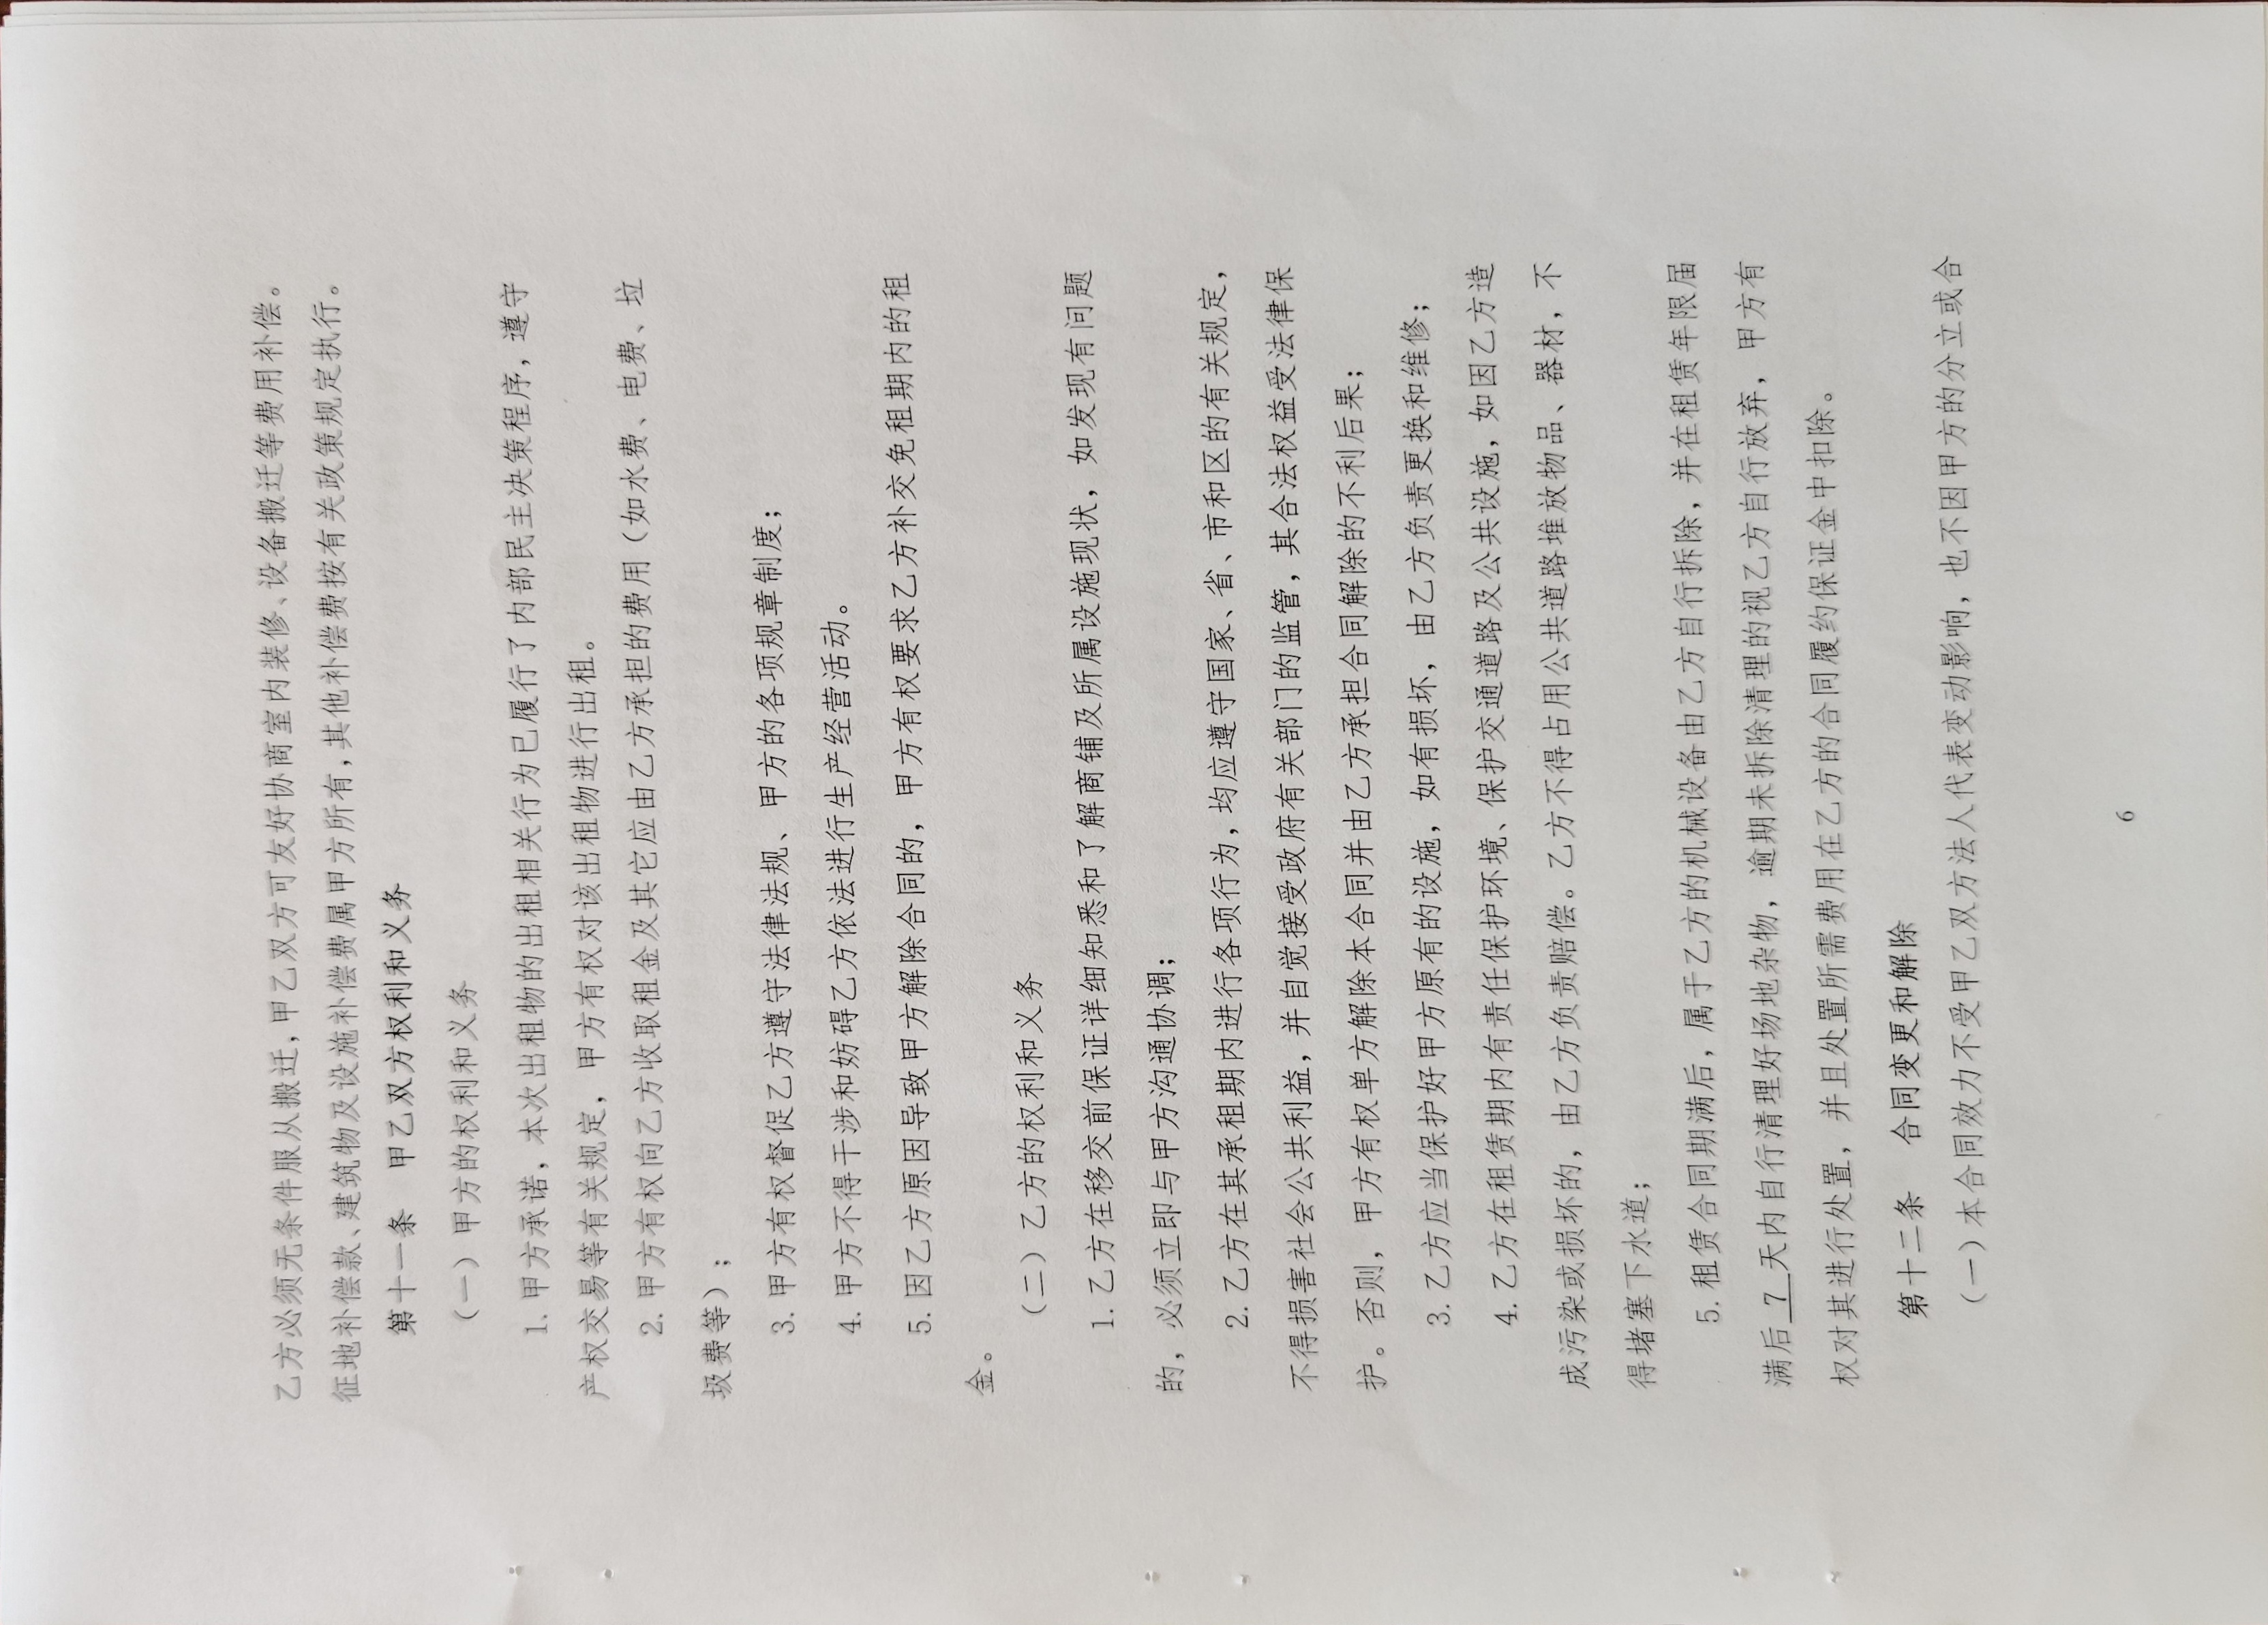 乙方必须无条件服从搬迁，甲乙双方可友好协商室内装修、设备搬迁等费用补偿。
征地补偿款、建筑物及设施补偿费属甲方所有，其他补偿费按有关政策规定执行。
第十一条 甲乙双方权利和义务
（一）甲方的权利和义务
1. 甲方承诺，本次出租物的出租相关行为已履行了内部民主决策程序，遵守
产权交易等有关规定，甲方有权对该出租物进行出租。
2. 甲方有权向乙方收取租金及其它应由乙方承担的费用（如水费、电费、垃
圾费等）；
3. 甲方有权督促乙方遵守法律法规、甲方的各项规章制度；
4. 甲方不得干涉和妨碍乙方依法进行生产经营活动。
5. 因乙方原因导致甲方解除合同的，甲方有权要求乙方补交免租期内的租
金。
（二）乙方的权利和义务
1. 乙方在移交前保证详细知悉和了解商铺及所属设施现状，如发现有问题
的，必须立即与甲方沟通协调；
2. 乙方在其承租期内进行各项行为，均应遵守国家、省、市和区的有关规定，
不得损害社会公共利益，并自觉接受政府有关部门的监管，其合法权益受法律保
护。否则，甲方有权单方解除本合同并由乙方承担合同解除的不利后果；
3. 乙方应当保护好甲方原有的设施，如有损坏，由乙方负责更换和维修；
4. 乙方在租赁期内有责任保护环境、保护交通道路及公共设施，如因乙方造
成污染或损坏的，由乙方负责赔偿。乙方不得占用公共道路堆放物品、器材，不
得堵塞下水道；
5. 租赁合同期满后，属于乙方的机械设备由乙方自行拆除，并在租赁年限届
满后 7 天内自行清理好场地杂物，逾期未拆除清理的视乙方自行放弃，甲方有
权对其进行处置，并且处置所需费用在乙方的合同履约保证金中扣除。
第十二条 合同变更和解除
（一）本合同效力不受甲乙双方法人代表变动影响，也不因甲方的分立或合
6